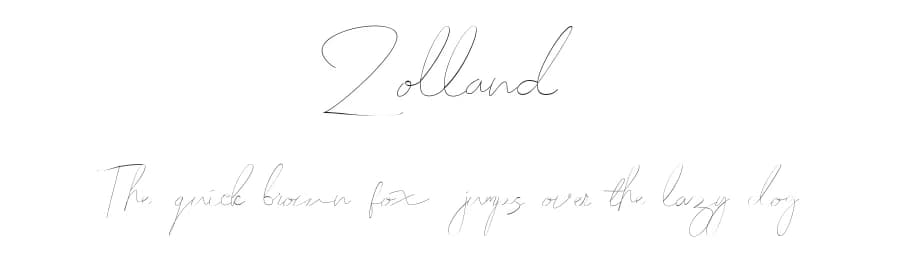 Zolland
The quick brown fox jumps over the lazy dog